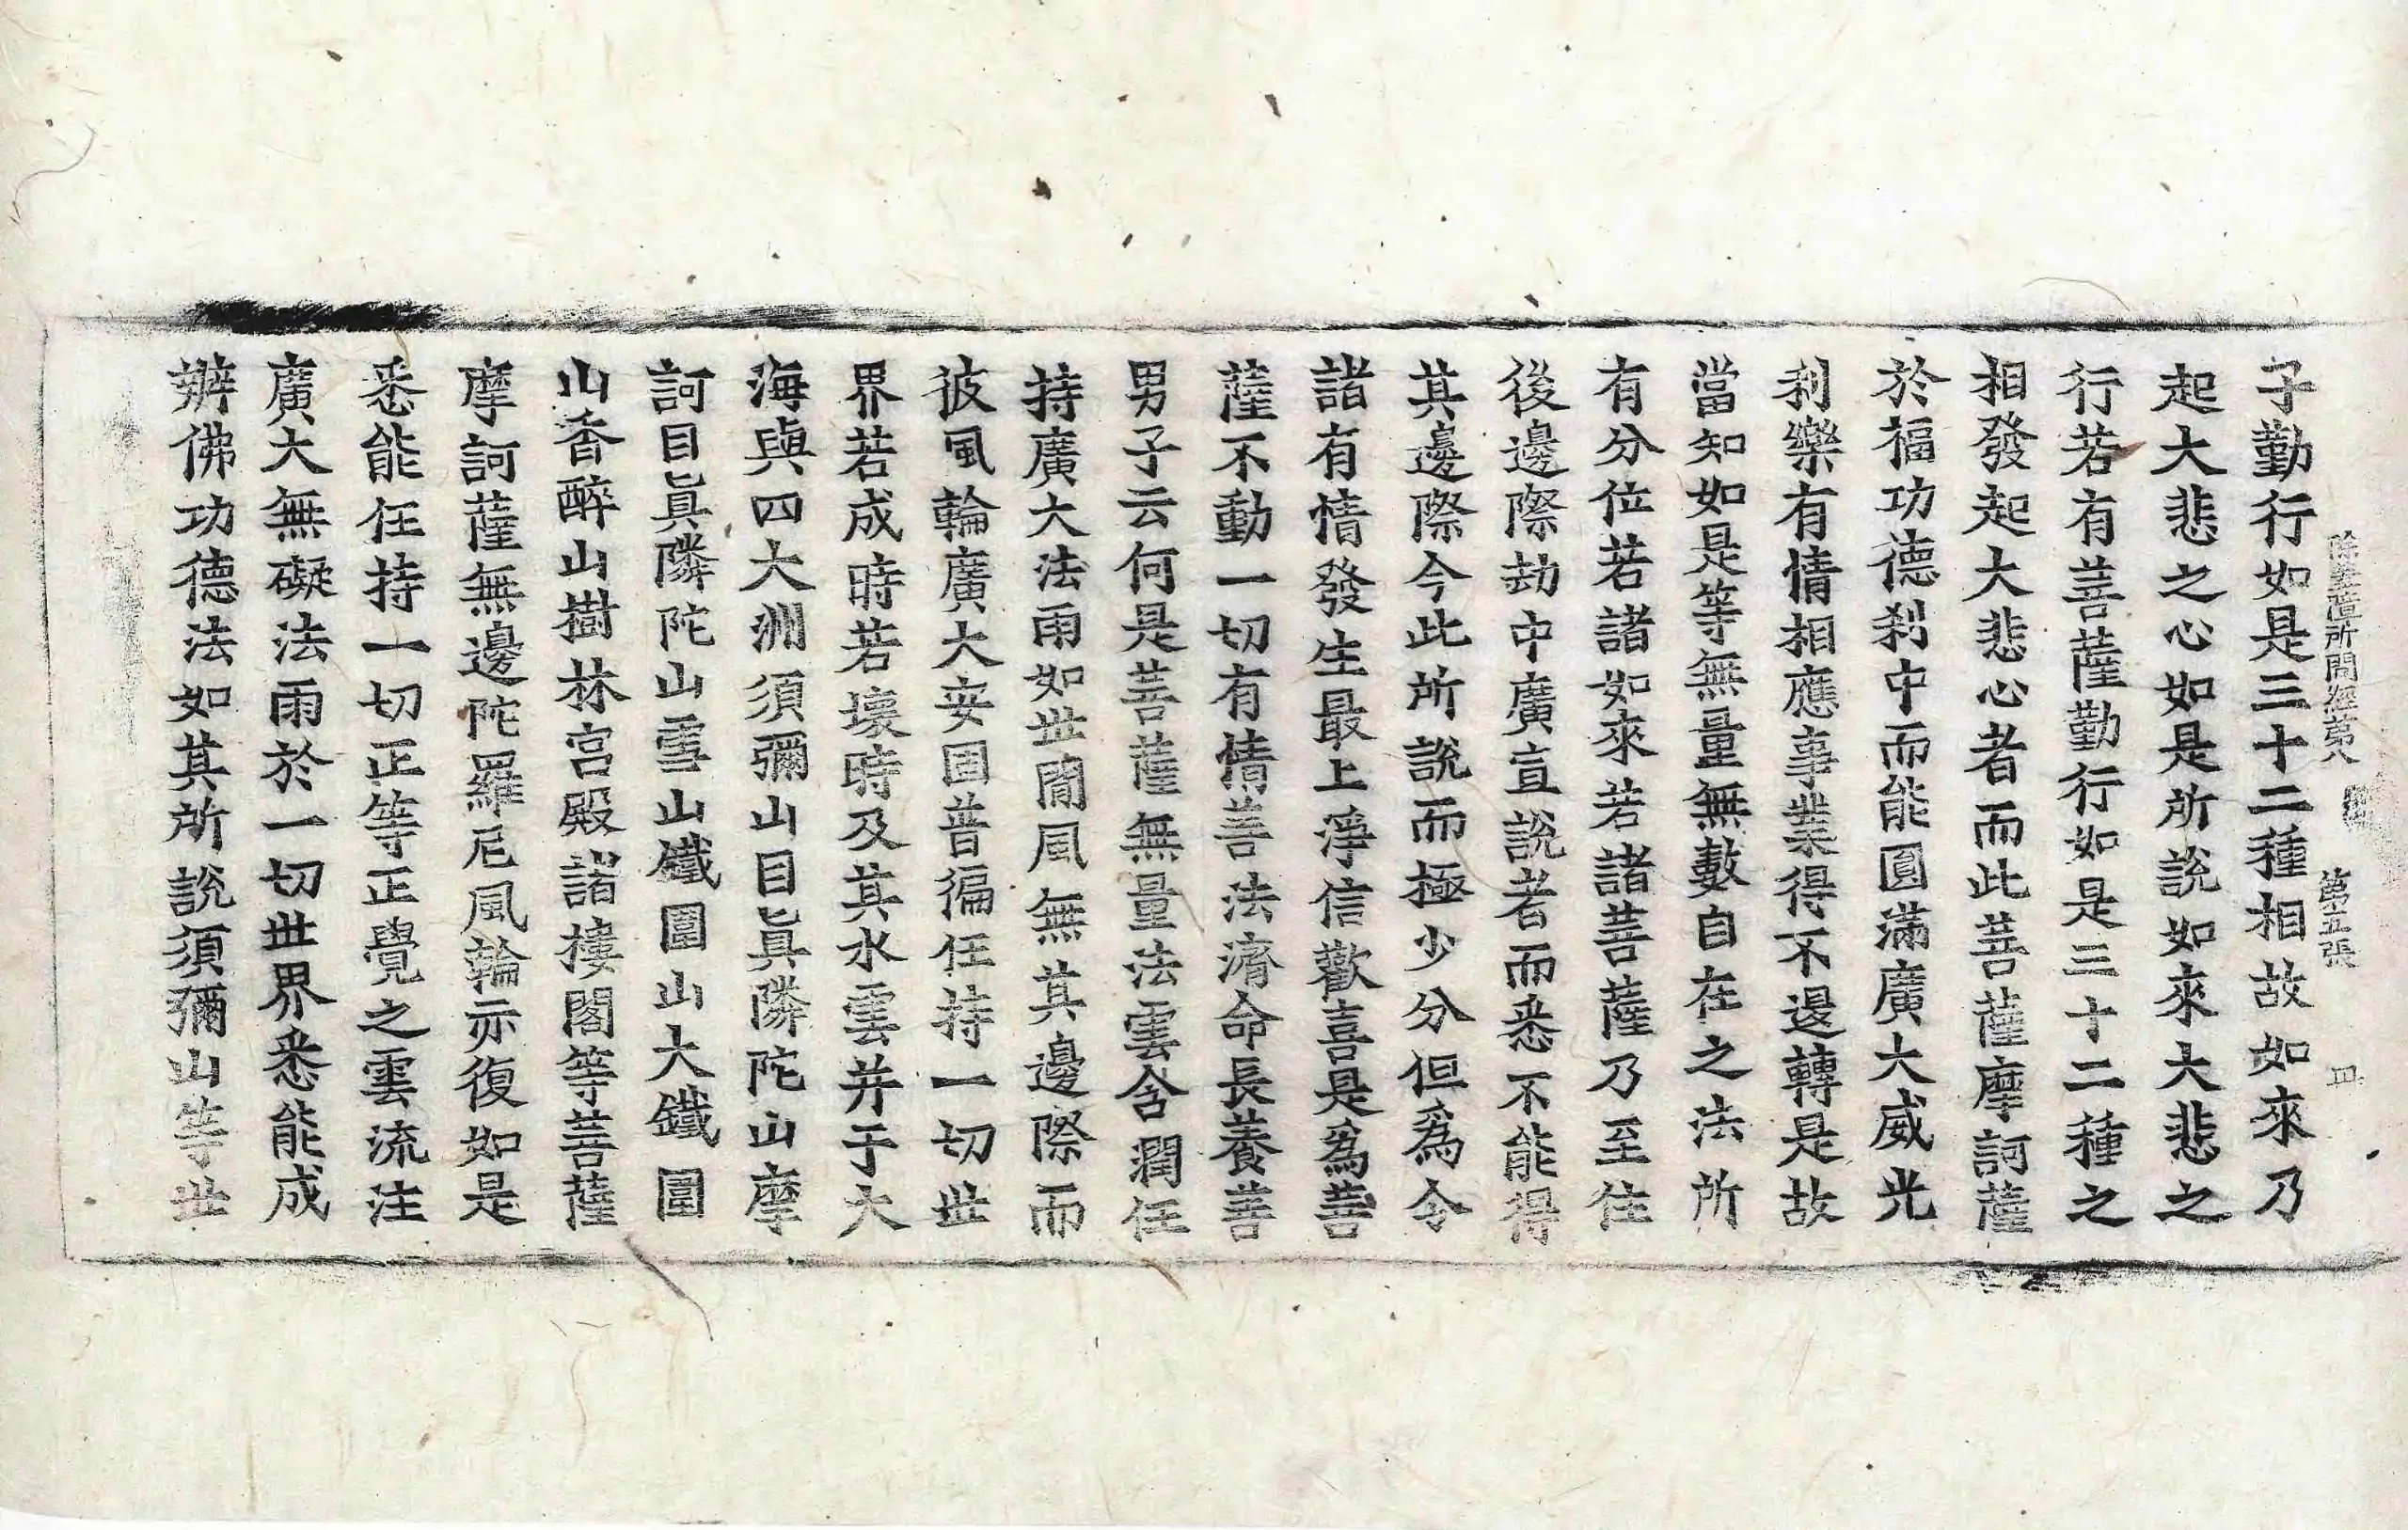 除蓋障所問經第八 第五張 四
子勤行如是三十二種相故如來乃
起大悲之心如是所說如來大悲之
行若有菩薩勤行如是三十二種之
相發起大悲心者而此菩薩摩訶薩
於福功德刹中而能圓滿廣大威光
利樂有情相應事業得不退轉是故
當知如是等無量無數自在之法所
有分位若諸如來若諸菩薩乃至住
後邊際劫中廣宣說者而悉不能得
其邊際今此所說而極少分但爲令
諸有情發生最上淨信歡喜是爲菩
薩不動一切有情善法濟命長養善
男子云何是菩薩無量法雲含潤任
持廣大法雨如世間風無其邊際而
彼風輪廣大安固普徧任持一切世
界若成時若壞時及其水雲并于大
海與四大洲須彌山目眞隣陀山摩
訶目眞隣陀山雪山鐵圍山大鐵圍
山香醉山樹林宮殿諸樓閣等菩薩
摩訶薩無邊陀羅尼風輪亦復如是
悉能任持一切正等正覺之雲流注
廣大無礙法雨於一切世界悉能成
辦佛功德法如其所說須彌山等世